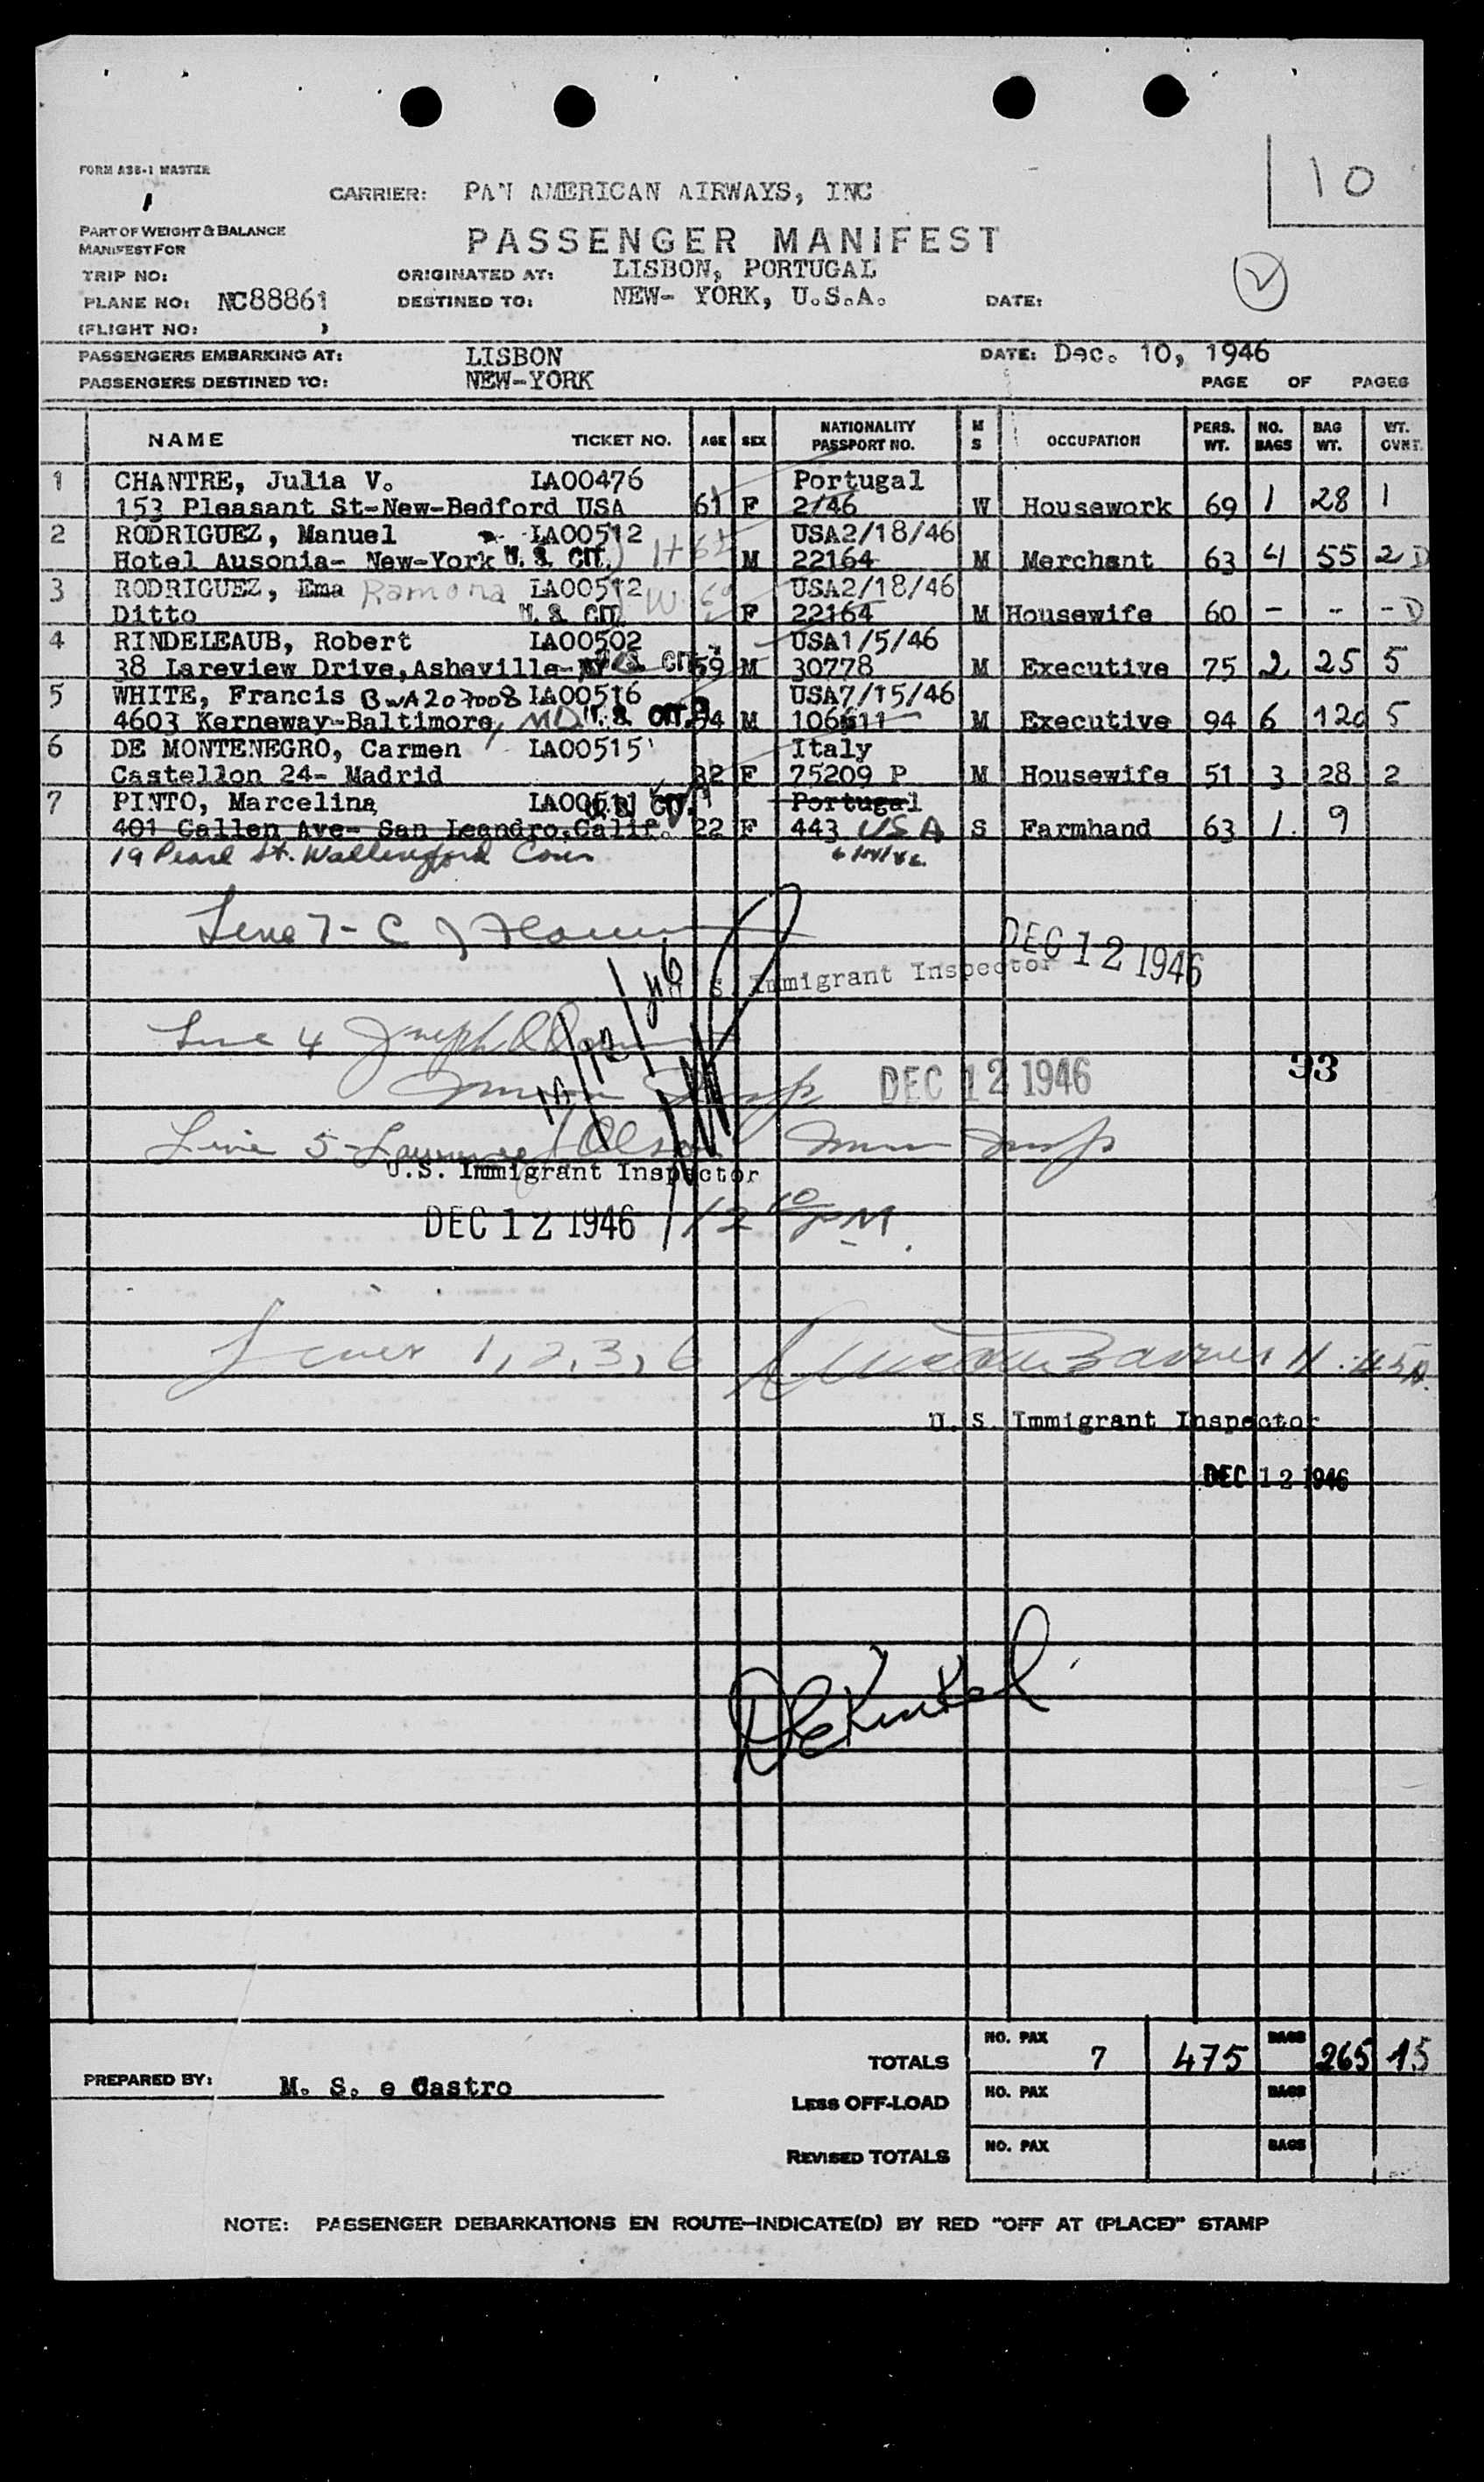 FORM ASB-1 MASTER
10
CARRIER: PAN AMERICAN AIRWAYS, INC
PART OF WEIGHT & BALANCE
MANIFEST FOR
PASSENGER MANIFEST
TRIP NO:
ORIGINATED AT: LISBON, PORTUGAL
PLANE NO: NC88861
DESTINED TO: NEW- YORK, U.S.A.
DATE:
(FLIGHT NO: )
PASSENGERS EMBARKING AT: LISBON
DATE: Dec. 10, 1946
PASSENGERS DESTINED TO: NEW-YORK
PAGE OF PAGES
NAME TICKET NO. AGE SEX NATIONALITY PASSPORT NO. M S OCCUPATION PERS. WT. NO. BAGS BAG WT. WT. OVNT.
1 CHANTRE, Julia V. LA00476 Portugal
153 Pleasant St-New-Bedford USA 61 F 2/46 W Housework 69 1 28 1
2 RODRIGUEZ, Manuel LA00512 USA2/18/46
Hotel Ausonia- New-York U. S. CIT. H 62 M 22164 M Merchant 63 4 55 2 D
3 RODRIGUEZ, Ema Ramona LA00512 USA2/18/46
Ditto U. S. CIT. W F 22164 M Housewife 60 - -- - D
4 RINDELEAUB, Robert LA00502 USA1/5/46
38 Lareview Drive, Asheville- CIT. 59 M 30778 M Executive 75 2 25 5
5 WHITE, Francis BWA207008 LA00516 USA7/15/46
4603 Kerneway-Baltimore, MD U. S. CIT. 54 M 106611 M Executive 94 6 120 5
6 DE MONTENEGRO, Carmen LA00515 Italy
Castellon 24- Madrid 32 F 75209 P M Housewife 51 3 28 2
7 PINTO, Marcelina LA00511 U. S. CIT. Portugal
401 Callen Ave- San Leandro, Calif. 22 F 443 USA S Farmhand 63 1. 9
19 Pearl St. Wallingford Conn
Line 7- C J
DEC 12 1946
U. S. Immigrant Inspector
12/46
Line 4 Joseph
33
DEC 12 1946
Line 5- Olson
U.S. Immigrant Inspector
DEC 12 1946
12 10 PM.
Lines 1, 2, 3, 6 11:45A.
U. S. Immigrant Inspector
DEC 12 1946
TOTALS NO. PAX 7 475 BAGS 265 15
PREPARED BY: M. S. e Castro
LESS OFF-LOAD NO. PAX BAGS
REVISED TOTALS NO. PAX BAGS
NOTE: PASSENGER DEBARKATIONS EN ROUTE—INDICATE(D) BY RED "OFF AT (PLACE)" STAMP